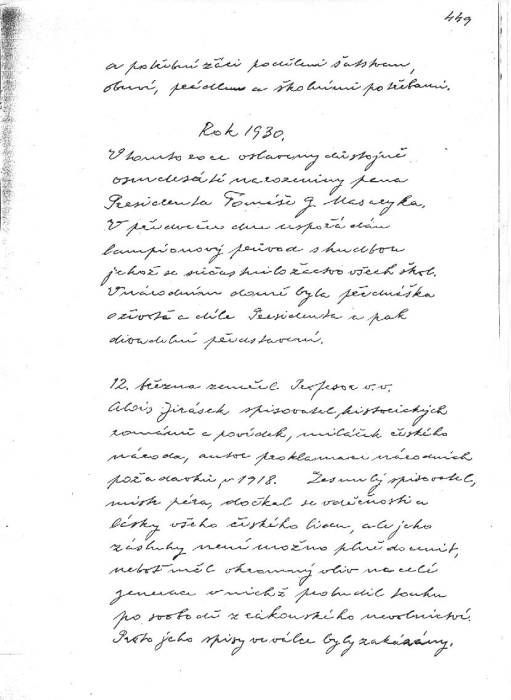 449
a potřební žáci poděleni šatstvem,
obuví, prádlem a školními potřebami.
Rok 1930.
V tomto roce oslaveny důstojně
osmdesáté narozeniny pana
Presidenta Tomáše G. Masaryka.
V předvečer dne uspořádán
lampionový průvod s hudbou
jehož se súčastnilo žactvo všech škol.
V národním domě byla přednáška
o životě a díle Presidenta a pak
divadelní představení.
12. března zemřel Profesor v.v.
Alois Jirásek spisovatel, historických
románů a povídek, miláček českého
národa, autor proklamace národních
požadavků, v 1918. Zesnulý spisovatel,
mistr péra, dočkal se vděčnosti a
lásky všeho českého lidu, ale jeho
zásluhy není možno plně docenit,
neboť měl ohromný vliv na celé
generace v nichž probudil touhu
po svobodě z rakouského nevolnictví.
Proto jeho spisy ve válce byly zakázány.